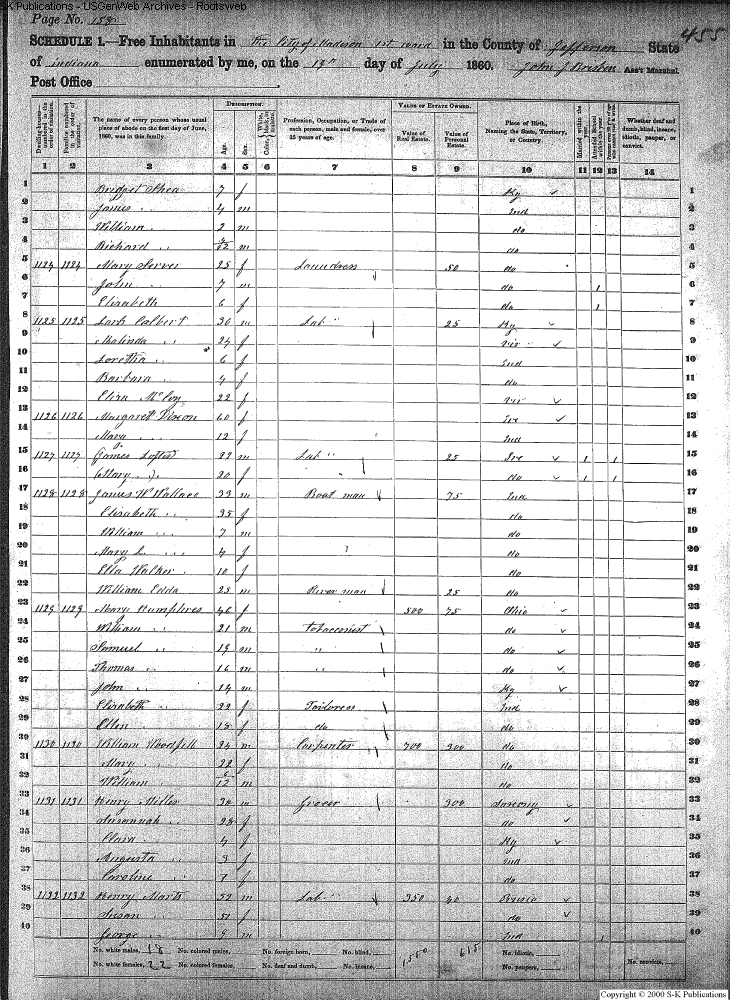 S-K Publications - USGenWeb Archives - Rootsweb
Page No. 158
455
SCHEDULE 1.—Free Inhabitants in The City of Madison 1st ward in the County of Jefferson State
of Indiana enumerated by me, on the 19th day of July 1860. John J Ass't Marshal.
Post Office
Dwelling-houses—numbered in the order of visitation.
Families numbered in the order of visitation.
The name of every person whose usual place of abode on the first day of June, 1860, was in this family.
DESCRIPTION.
Age.
Sex.
Color, White, black, or mulatto.
Profession, Occupation, or Trade of each person, male and female, over 15 years of age.
VALUE OF ESTATE OWNED.
Value of Real Estate.
Value of Personal Estate.
Place of Birth, Naming the State, Territory, or Country.
Married within the year.
Attended School within the year.
Persons over 20 y'rs of age who cannot read & write.
Whether deaf and dumb, blind, insane, idiotic, pauper, or convict.
1 2 3 4 5 6 7 8 9 10 11 12 13 14
1 Bridget Shea 7 f Ky 1
2 James " 4 m Ind 2
3 William " 2 m do 3
4 Richard " m do 4
5 1124 1124 Mary Server 25 f Laundress 50 do 5
6 John " 7 m do 1 6
7 Elizabeth 6 f do 1 7
8 1125 1125 Colbert 30 m Lab " 25 Ky 8
9 Malinda " 24 f Vir 9
10 Loretha " 6 f Ind 10
11 Barbara " 4 f do 11
12 Eliza McCoy 22 f Vir 12
13 1126 1126 Margaret Dixon 60 f Ire 13
14 Mary " 12 f Ind 14
15 1127 1127 James Loftus 22 m Lab " 25 Ire 1 1 15
16 Mary " 20 f do 1 1 16
17 1128 1128 James W Wallace 39 m Boat man 75 Ind 17
18 Elizabeth " 35 f do 18
19 William " 7 m do 19
20 Mary L " 4 f do 20
21 Ella Walker 10 f do 21
22 William Edda 25 m River man 25 do 22
23 1129 1129 Mary Humphres 46 f 500 75 Ohio 23
24 William " 21 m Tobacconist do 24
25 Samuel " 19 m " do 25
26 Thomas " 16 m " do 26
27 John " 14 m Ky 27
28 Elizabeth " 22 f Tailoress Ind 28
29 Ellen " 18 f do do 29
30 1130 1130 William Woodfill 24 m Carpenter 700 300 do 30
31 Mary " 22 f do 31
32 William 6/12 m do 32
33 1131 1131 Henry Miller 30 m Grocer 300 Saxony 33
34 Susannah " 28 f do 34
35 Clara " 4 f Ky 35
36 Augusta " 3 f Ind 36
37 Caroline " 1 f do 37
38 1132 1132 Henry Marts 52 m Lab " 350 40 Prusia 38
39 Susan " 51 f do 39
40 George " 9 m Ind 1 40
No. white males, 18 No. colored males, No. foreign born, No. blind, 1550 615 No. idiotic,
No. white females, 22 No. colored females, No. deaf and dumb, No. insane, No. paupers, No. convicts,
Copyright © 2000 S-K Publications